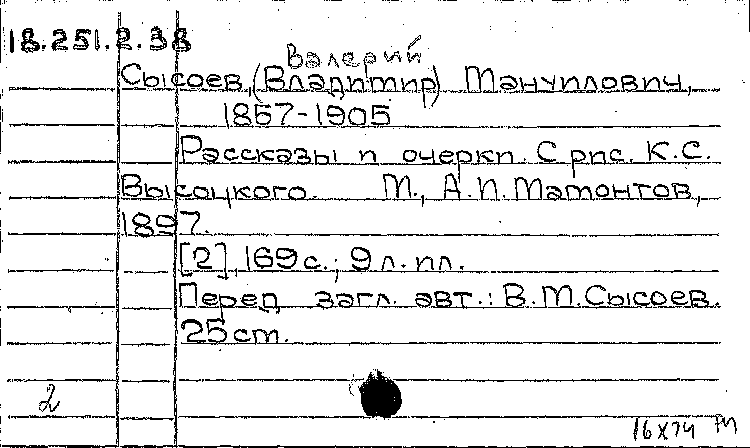 18.251.2.38
Валерий
Сысоев, (Владимир) Мануилович,
1857-1905
Рассказы и очерки. С рис. К.С.
Высоцкого. М., А.И. Мамонтов,
1897.
[2], 169 с.; 9 л. ил.
Перед загл. авт.: В.М. Сысоев.
25 ст.
2
16 х 74